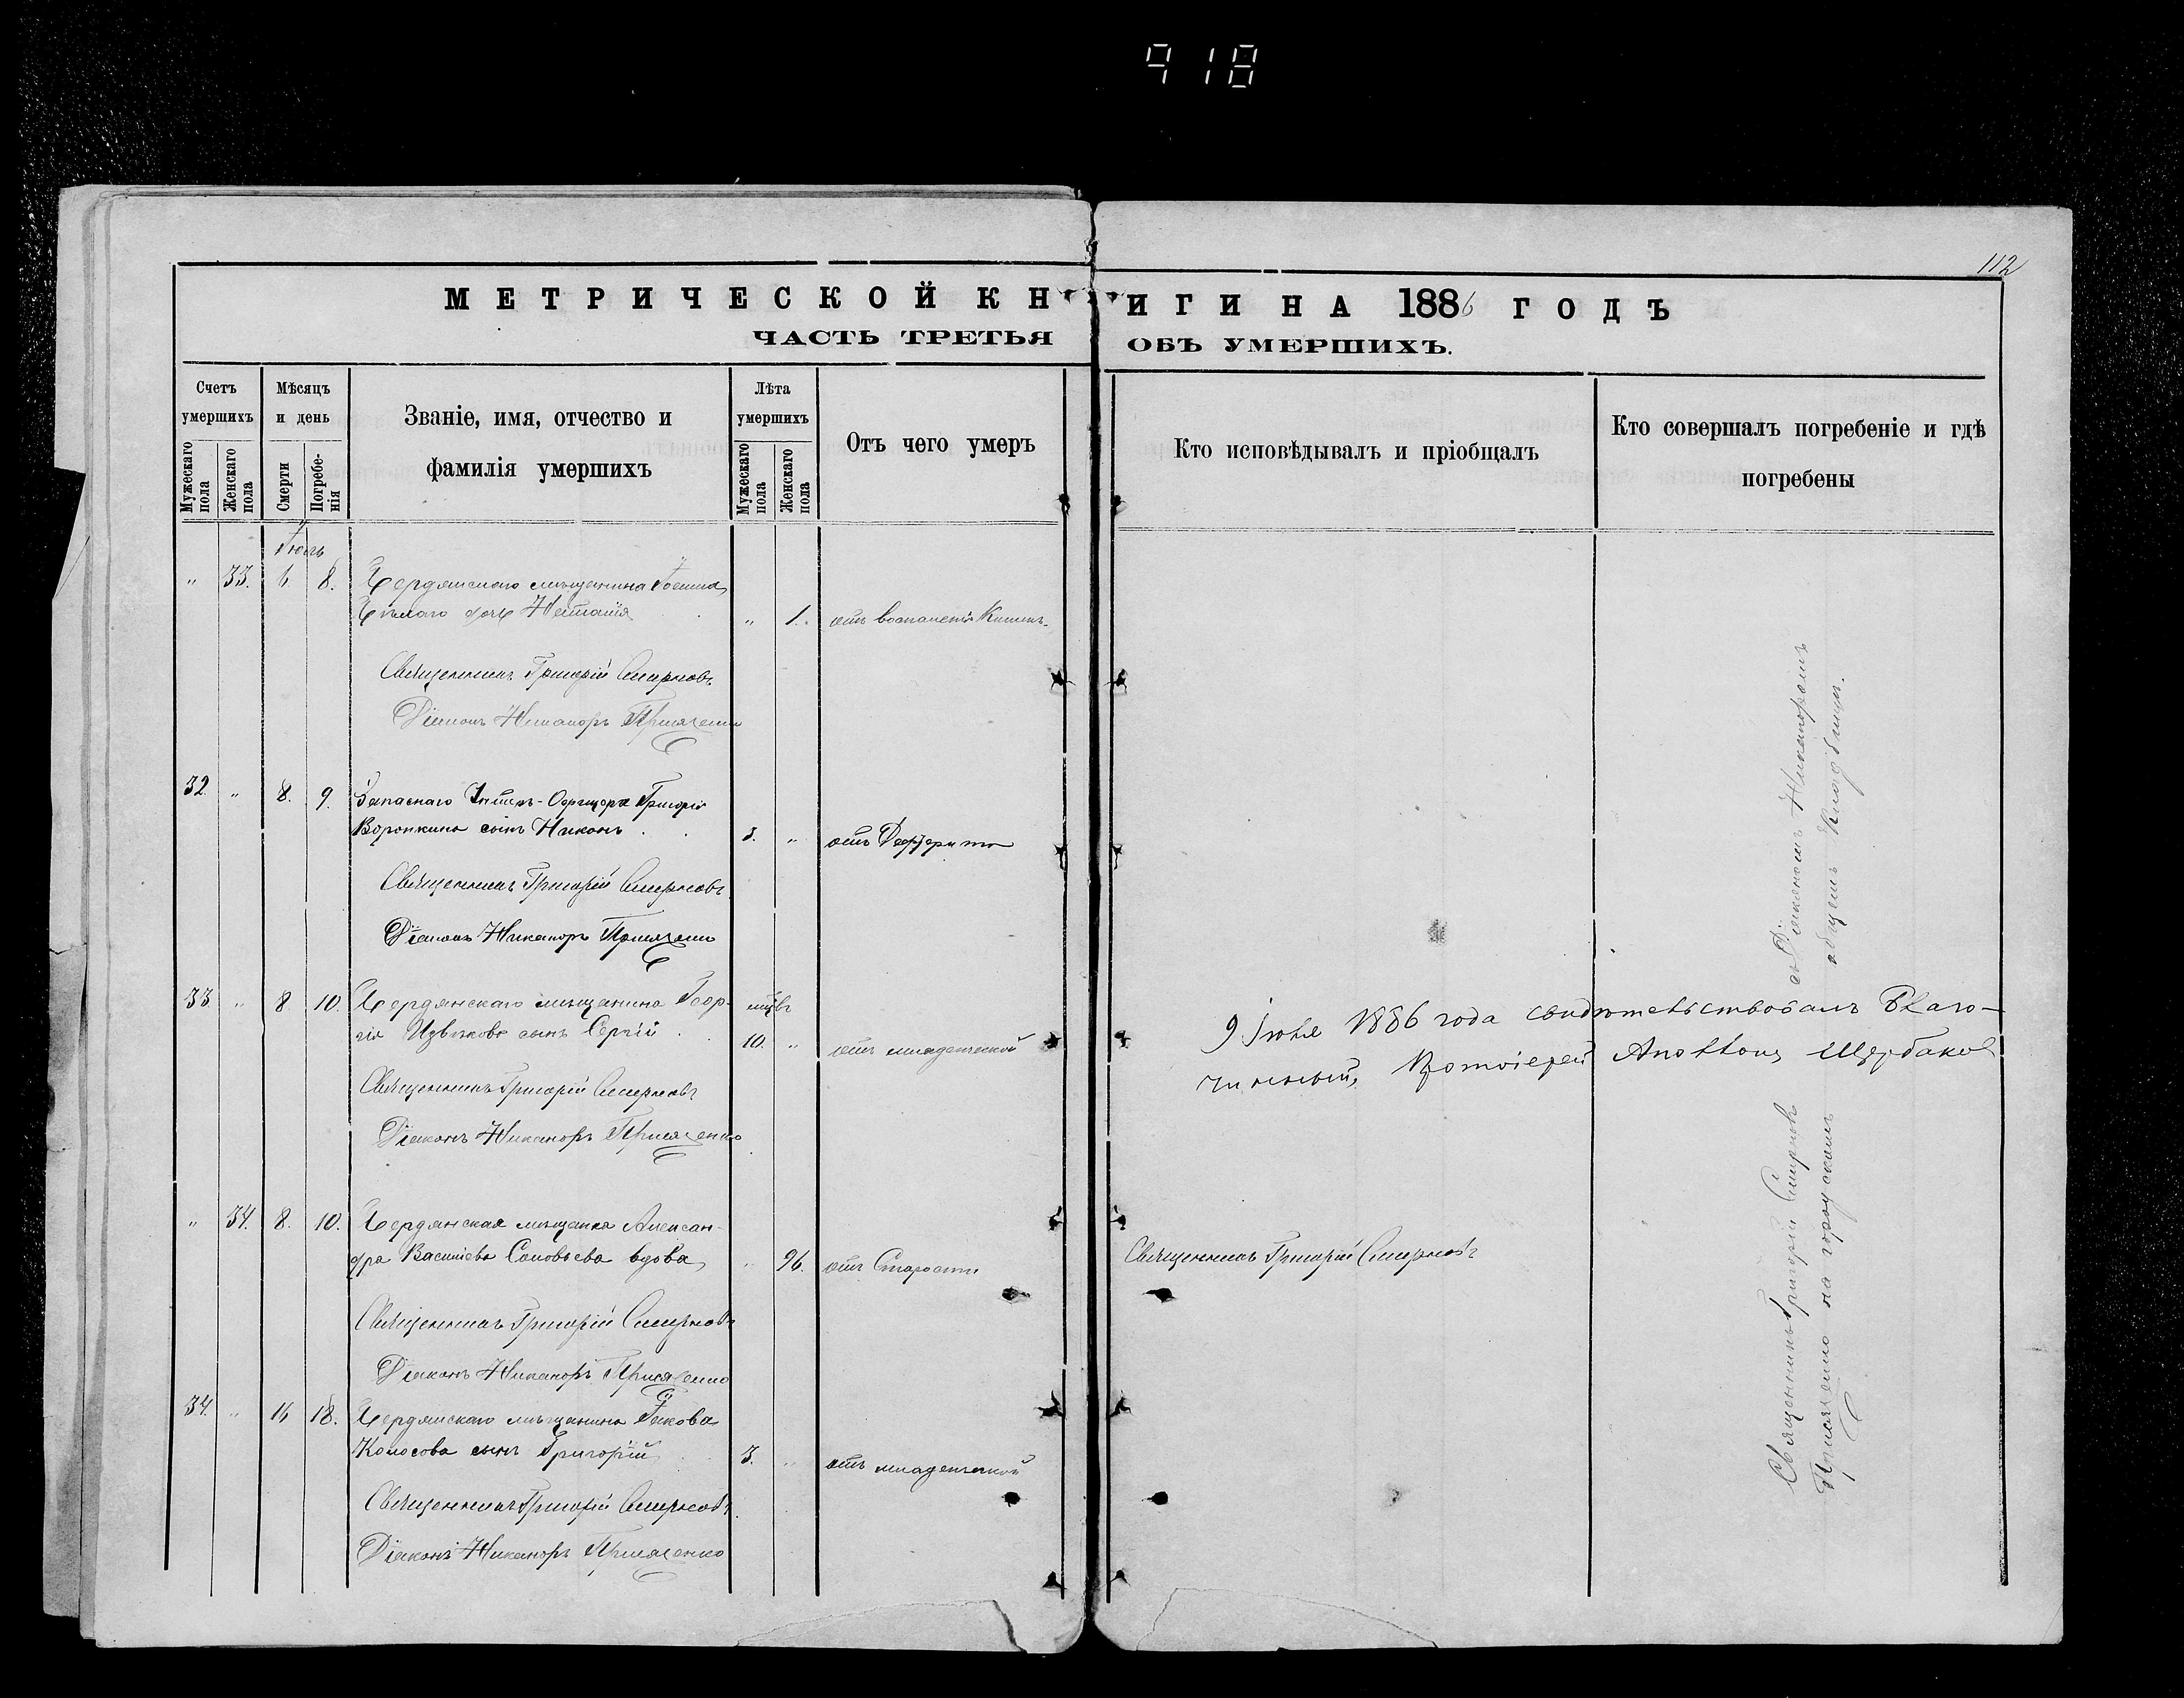 918
112
МЕТРИЧЕСКОЙ КНИГИ НА 1886 ГОДЪ
ЧАСТЬ ТРЕТЬЯ ОБЪ УМЕРШИХЪ.
Счетъ умершихъ
Мужескаго пола
Женскаго пола
Мѣсяцъ и день
Смерти
Погребенія
Званіе, имя, отчество и фамилія умершихъ
Лѣта умершихъ
Мужескаго пола
Женскаго пола
Отъ чего умеръ
Кто исповѣдывалъ и пріобщалъ
Кто совершалъ погребеніе и гдѣ погребены
Іюль
" 33. 6 8. Бердянскаго мѣщанина
дочь Наталія " 1. отъ воспаленія Кишекъ.
Священникъ Григорій Смирновъ.
Діаконъ Никаноръ Присяженко
32. " 8. 9. Запаснаго Унтеръ-Офицера Григорія
Воронкина сынъ Никонъ 3. " отъ Дифтерита
Священникъ Григорій Смирновъ
Діаконъ Никаноръ Присяженко
33 " 8 10. Бердянскаго мѣщанина Геор- мцвъ
гія Извѣкова сынъ Сергій 10. " отъ младенческой
Священникъ Григорій Смирновъ
Діаконъ Никаноръ Присяженко
9 Іюля 1886 года свидѣтельствовалъ Благо-
чинный, Протоіерей Аполлонъ Щербаков
" 34. 8. 10. Бердянская мѣщанка Алексан-
дра Василіева Соловьева вдова " 96. отъ Старости Священникъ Григорій Смирновъ
Священникъ Григорій Смирновъ
Діаконъ Никаноръ Присяженко
34. " 16 18. Бердянскаго мѣщанина Іакова
Колосова сынъ Григорій 3. " отъ младенческой
Священникъ Григорій Смирновъ
Діаконъ Никаноръ Присяженко
Священникъ Григорій Смирновъ съ Діакономъ Никаноромъ
Присяженко на городскомъ общемъ кладбищѣ.